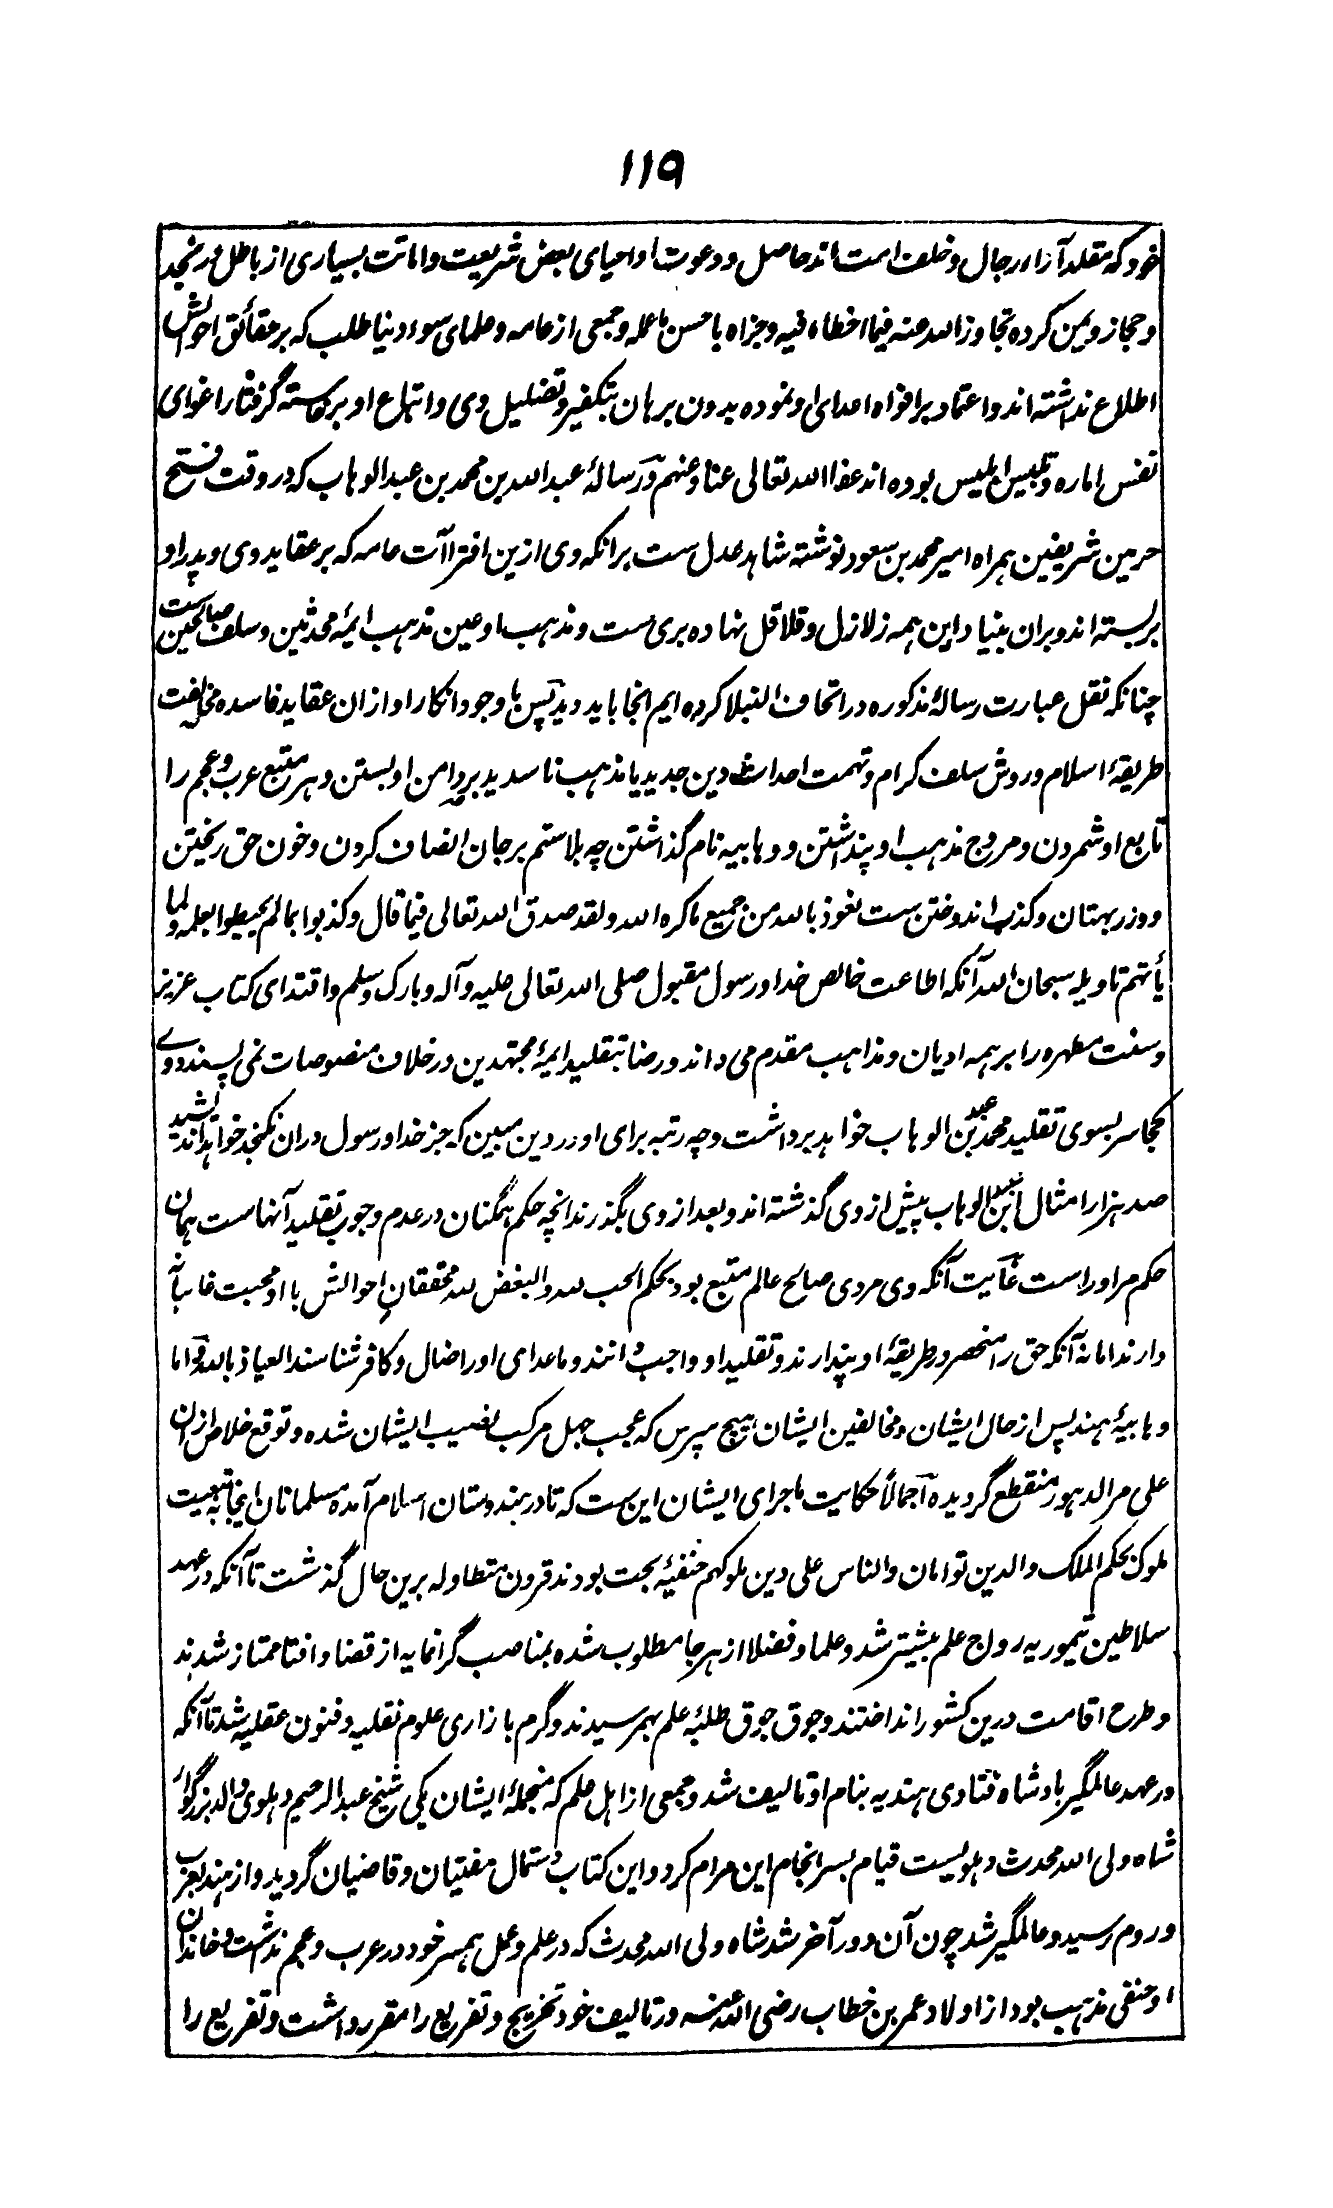 ۱۱۹
خود که مقلد آراء رجال و خلف است اند حاصل و دعوت او احیای بعض شریعت و اماتت بسیاری از باطل در نجد
و حجاز و یمن کرده تجاوز الله عنه فیما اخطاء فیه و جزاه باحسن ما عمله و جمعی از عامه و علمای سوء دنیا طلب که بر حقائق احوالش
اطلاع نداشته اند و اعتماد بر افواه اعدای او نموده بدون برهان بتکفیر و تضلیل وی و اتباع او برخاسته گرفتار اغوای
نفس اماره و تلبیس ابلیس بوده اند عفا الله تعالی عنا و عنهم و رسالهٔ عبدالله بن محمد بن عبدالوهاب که در وقت فتح
حرمین شریفین همراه امیر محمد بن سعود نوشته شاهد عدل ست برانکه وی ازین افترا آت عامه که بر عقاید وی و پدر او
بربسته اند و بران بنیاد این همه زلازل و قلاقل نهاده بری ست و مذهب او عین مذهب ایمهٔ محدثین و سلف صالحین ست
چنانکه نقل عبارت رسالهٔ مذکوره در اتحاف النبلا کرده ایم انجا باید دید پس با وجود انکار او ازان عقاید فاسده مخالفت
طریقهٔ اسلام و روش سلف کرام و تهمت احداث دین جدید یا مذهب ناسدید بر دامن او بستن و هر متبع عرب و عجم را
تابع او شمردن و مروج مذهب او پنداشتن و وهابیه نام گذاشتن چه بلا ستم بر جان انصاف کردن و خون حق ریختن
و وزر بهتان و کذب اندوختن ست نعوذ بالله من جمیع ما کره الله و لقد صدق الله تعالی فیما قال و کذبوا بما لم یحیطوا بعلمه و لما
یأتهم تاویله سبحان الله آنکه اطاعت خالص خدا و رسول مقبول صلی الله تعالی علیه و آله و بارک و سلم و اقتدای کتاب عزیز
و سنت مطهره را بر همه ادیان و مذاهب مقدم می داند و رضا بتقلید ایمهٔ مجتهدین در خلاف منصوصات نمی پسندد وی
کجا سر بسوی تقلید محمد بن عبد الوهاب خواهد برداشت و چه رتبه برای او در دین مبین که جز خدا و رسول دران نگنجد خواهد اندیشید
صد هزار امثال ابن عبد الوهاب پیش از وی گذشته اند و بعد از وی بگذرند انچه حکم همگنان در عدم وجوب تقلید آنهاست همان
حکم مر او راست غایت آنکه وی مردی صالح عالم متبع بود بحکم الحب لله و البغض لله محققان احوالش با او محبت غائبانه
دارند اما نه آنکه حق را منحصر در طریقهٔ او پندارند و تقلید او واجب دانند و ماعدای او را ضال و کافر شناسند العیاذ بالله و اما
وهابیهٔ هند پس از حال ایشان و مخالفین ایشان هیچ مپرس که عجب جهل مرکب نصیب ایشان شده و توقع خلاص ازان
علی مر الدهور منقطع گردیده اجمالاً حکایت ماجرای ایشان این ست که تا در هندوستان اسلام آمده مسلمانان اینجا به تبعیت
ملوک بحکم الملک و الدین توامان و الناس علی دین ملوکهم حنفیهٔ بحت بودند قرون متطاوله برین حال گذشت تا آنکه در عهد
سلاطین تیموریه رواج علم بیشتر شد و علما و فضلا از هر جا مطلوب شده بمناصب گرانمایه از قضا و افتا ممتاز شدند
و طرح اقامت درین کشور انداختند و جوق جوق طلبهٔ علم بهم رسیدند و گرم بازاری علوم نقلیه و فنون عقلیه شد تا آنکه
در عهد عالمگیر بادشاه فتاوی هندیه بنام او تالیف شد و جمعی از اهل علم که منجملهٔ ایشان یکی شیخ عبدالرحیم دهلوی والد بزرگوار
شاه ولی الله محدث دهلویست قیام بسرانجام این مرام کرد و این کتاب دستمال مفتیان و قاضیان گردید و از هند بعرب
و روم رسید و عالمگیر شد چون آن دور آخر شد شاه ولی الله محدث که در علم و عمل همسر خود در عرب و عجم نداشت و خاندان
او حنفی مذهب بود از اولاد عمر بن خطاب رضی الله عنه در تالیف خود تخریج و تفریع را مقرر داشت و تفریع را